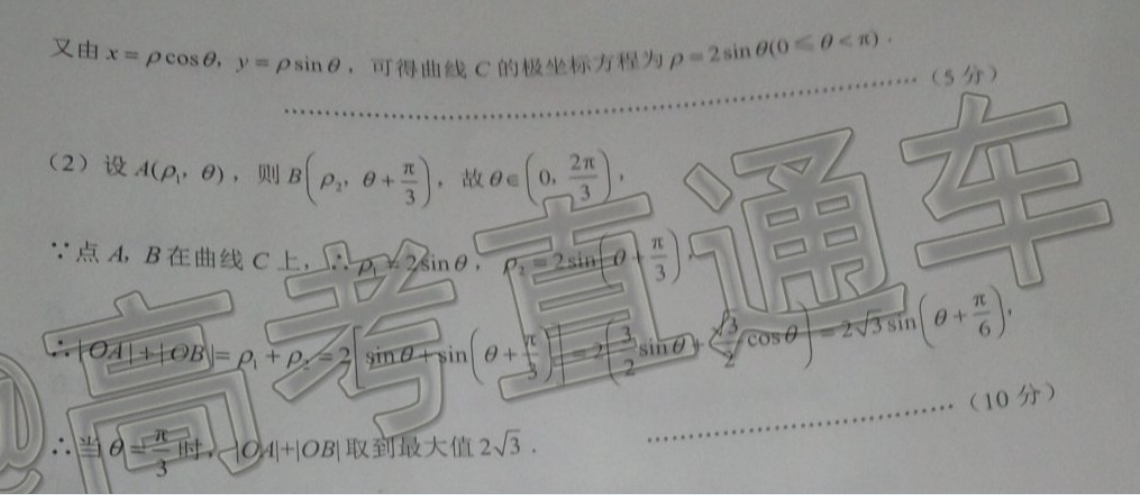 又由 x = ρcosθ, y = ρsinθ，可得曲线 C 的极坐标方程为 ρ = 2sinθ(0 ≤ θ < π).
……………………………………………（5 分）
（2）设 A(ρ₁, θ)，则 B(ρ₂, θ + π/3)，故 θ∈(0, 2π/3)，
∵点 A, B 在曲线 C 上，∴ρ₁ = 2sinθ，ρ₂ = 2sin(θ + π/3)，
∴|OA|+|OB|= ρ₁ + ρ₂ = 2[sinθ + sin(θ + π/3)] = 2(3/2 sinθ + √3/2 cosθ) = 2√3 sin(θ + π/6)，
……………………（10 分）
∴当 θ = π/3 时，|OA|+|OB| 取到最大值 2√3．
@高考直通车